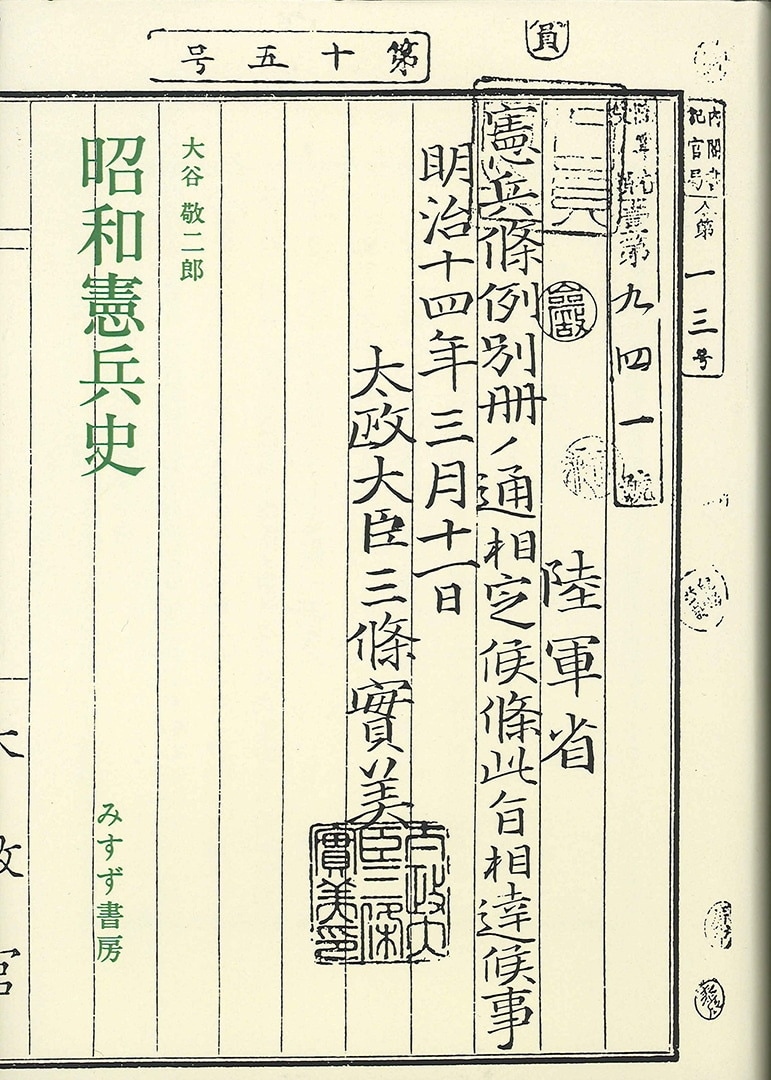 員
第十五号
内閣書
記官局
人第一三号
第九四一號
陸軍省
憲兵條例別冊ノ通相定候條此旨相達候事
明治十四年三月十一日
太政大臣三條實美
太政大
臣三條
實美印
大谷 敬二郎
昭和憲兵史
みすず書房